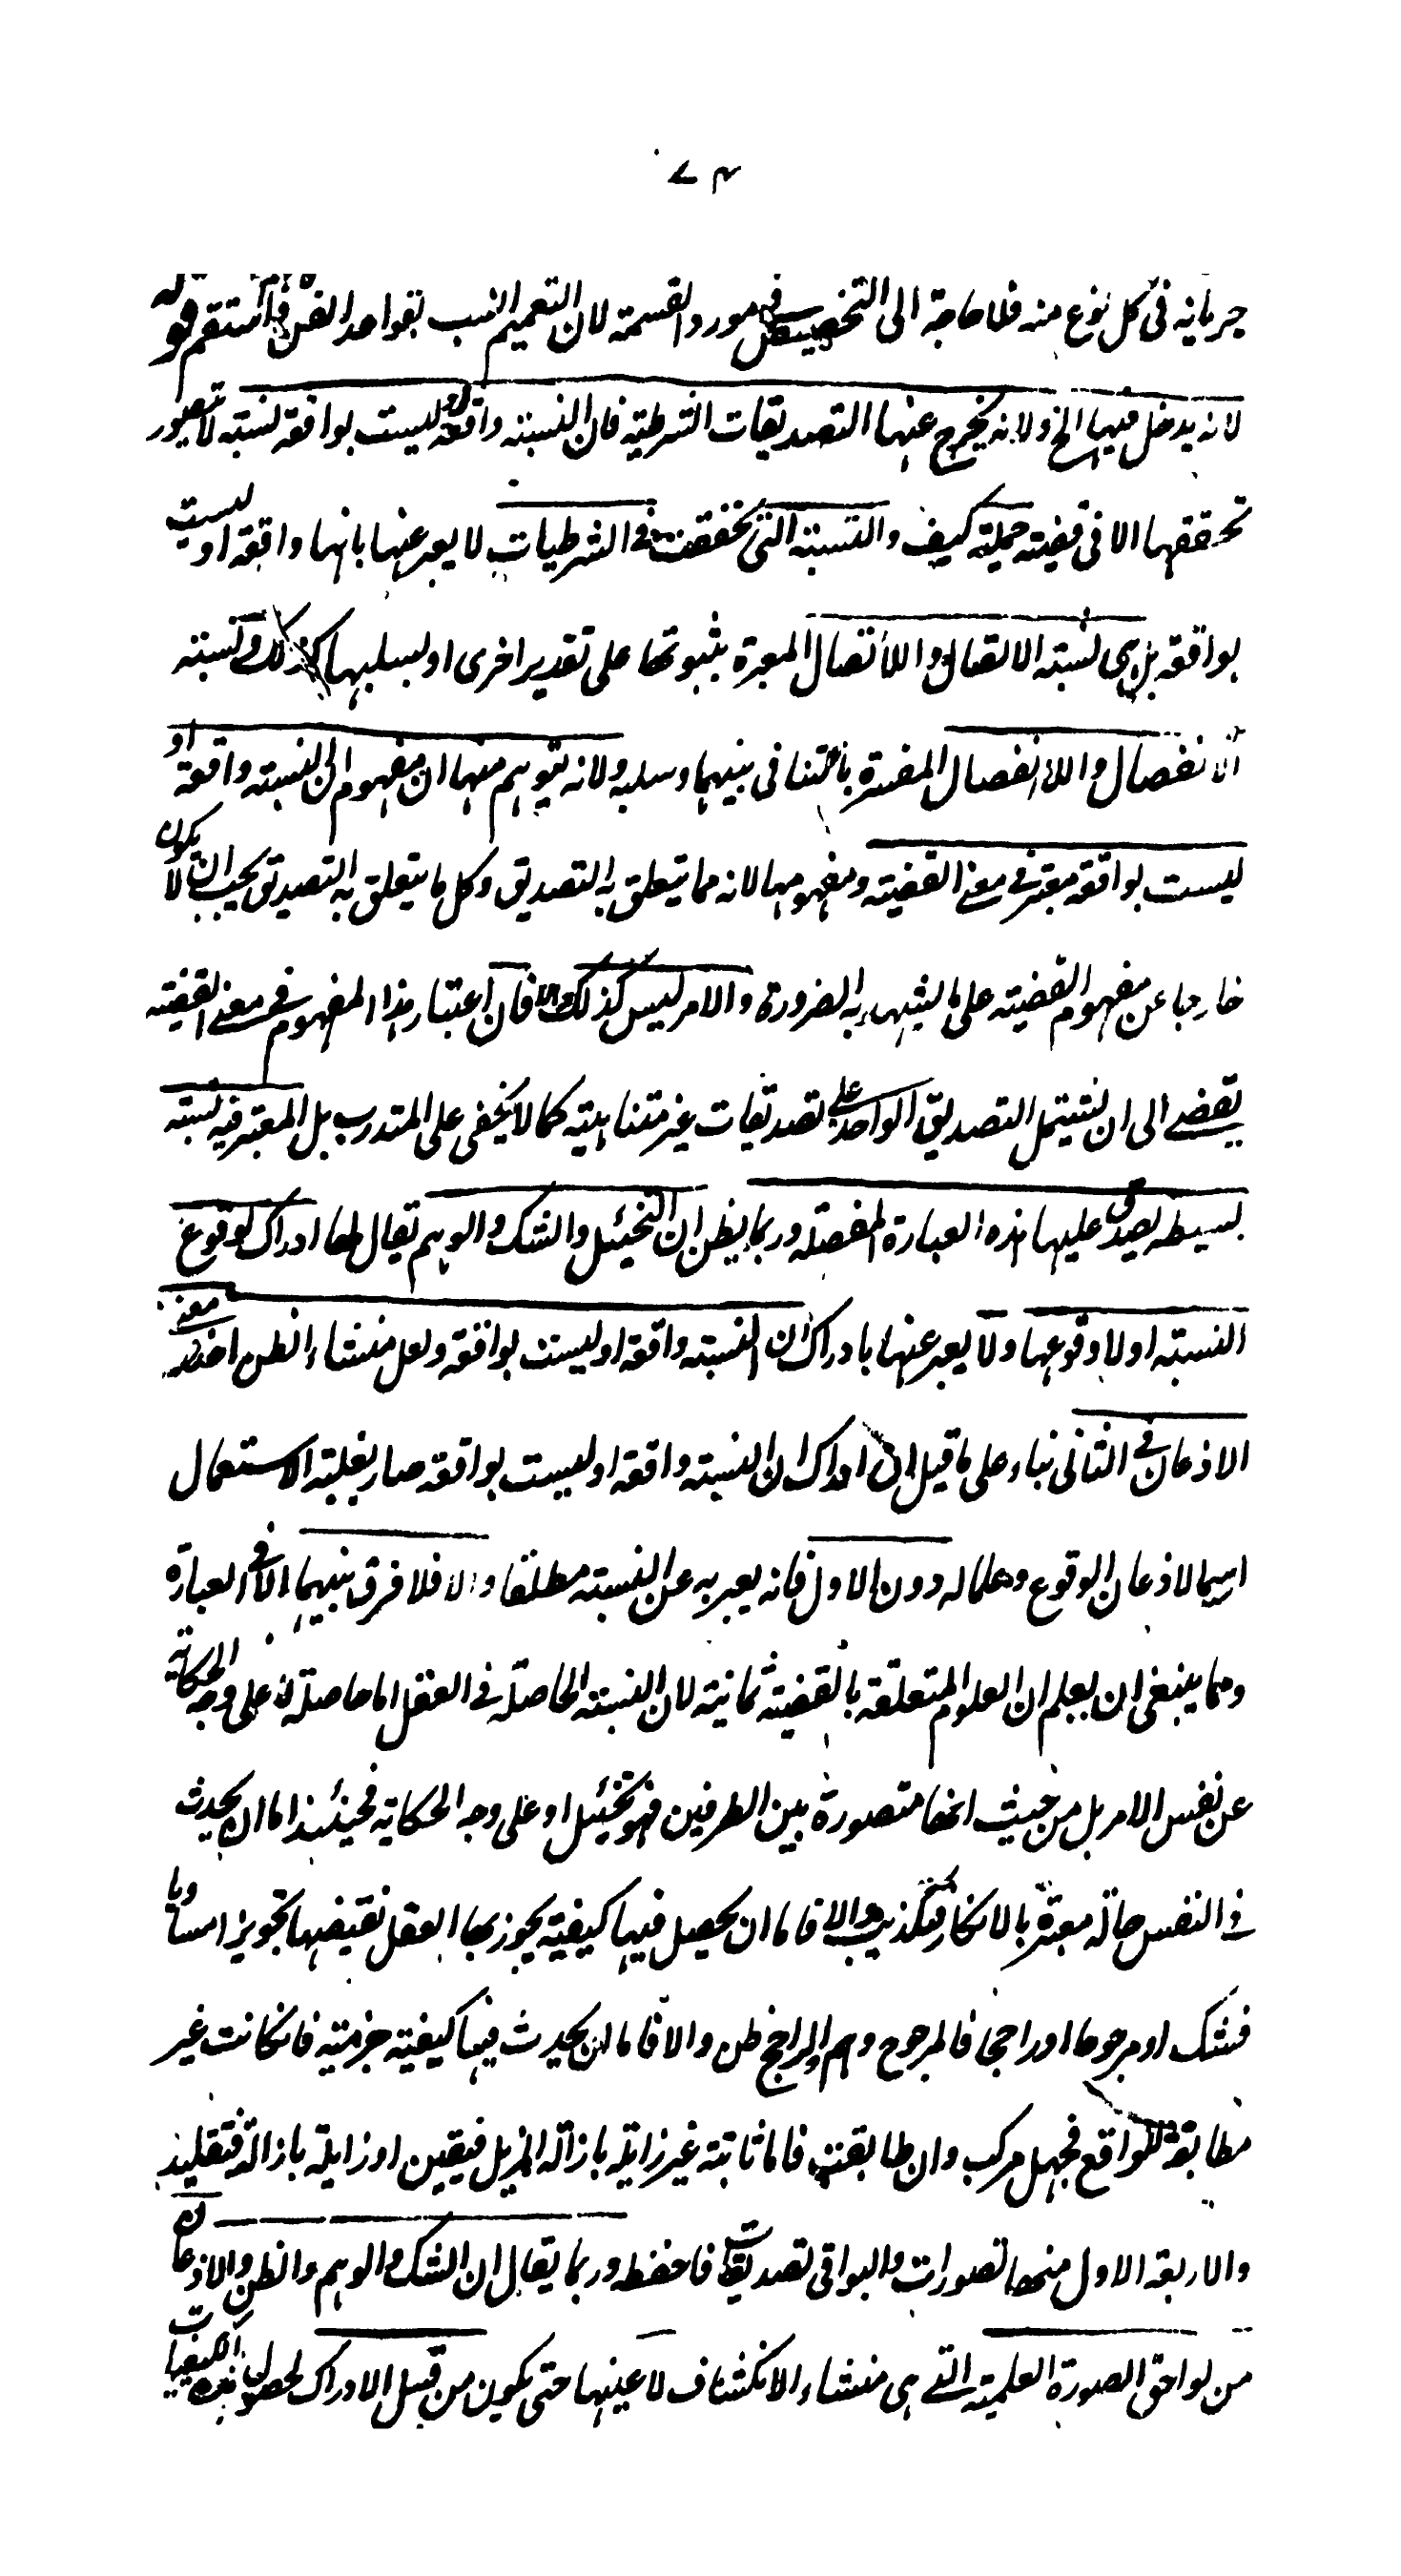 ٧٤
جريانه في كل نوع منه فلا حاجة الى التخصيص في مورد القسمة لان التعميم انسب بقواعد الفن فاستقم قوله
لانه يدخل فيها الخ ولانه يخرج عنها التصديقات الشرطية فان النسبة واقعة او ليست بواقعة نسبة لا يتصور
تحققها الا في قضية حملية كيف والنسبة التي تحققت في الشرطيات لا يعبر عنها بانها واقعة او ليست
بواقعة بل هي نسبة الاتصال واللااتصال المعبرة بثبوتها على تقدير اخرى او بسلبها كذلك ونسبة
الانفصال واللاانفصال المفسرة بالتنافي بينهما وسلبه ولانه يتوهم منها ان مفهوم ان النسبة واقعة او
ليست بواقعة معتبر في معنى القضية ومفهومها لانه مما يتعلق به التصديق وكل ما يتعلق به التصديق يجب ان لا يكون
خارجا عن مفهوم القضية على ما يشهد به الضرورة والامر ليس كذلك والا فان اعتبار هذا المفهوم في معنى القضية
يفضى الى ان يشتمل التصديق الواحد على تصديقات غير متناهية كما لا يخفى على المتدرب بل المعتبر فيه نسبة
بسيطة يصدق عليها هذه العبارة المفصلة وربما يظن ان التخييل والشك والوهم يقال لها ادراك لوقوع
النسبة او لا وقوعها ولا يعبر عنها بادراك ان النسبة واقعة او ليست بواقعة ولعل منشاء الظن اخذ معنى
الاذعان في الثاني بناء على ما قيل ان ادراك ان النسبة واقعة او ليست بواقعة صار بغلبة الاستعمال
اسما لاذعان الوقوع وعلما له دون الاول فانه يعبر به عن النسبة مطلقا والا فلا فرق بينهما الا في العبارة
ومما ينبغي ان يعلم ان العلوم المتعلقة بالقضية ثمانية لان النسبة الحاصلة في العقل اما حاصلة لا على وجه الحكاية
عن نفس الامر بل من حيث انها متصورة بين الطرفين فهو تخييل او على وجه الحكاية فحينئذ اما ان يحدث
في النفس حالة معبرة بالانكار فتكذيب والا فاما ان يحصل فيها كيفية يجوز بها العقل نقيضها تجويزا مساويا
فشك او مرجوحا او راجحا فالمرجوح وهم والراجح ظن والا فاما ان يحدث فيها كيفية جزمية فانكانت غير
مطابقة للواقع فجهل مركب وان طابقت فاما ثابتة غير زايلة بازالة المزيل فيقين او زايلة بازالة فتقليد
والاربعة الاول منها تصورات والبواقي تصديقات فاحفظه وربما يقال ان الشك والوهم والظن والاذعان
من لواحق الصورة العلمية التي هي منشاء الانكشاف لا عينها حتى يكون من قبيل الادراك لحصول الكيفيات